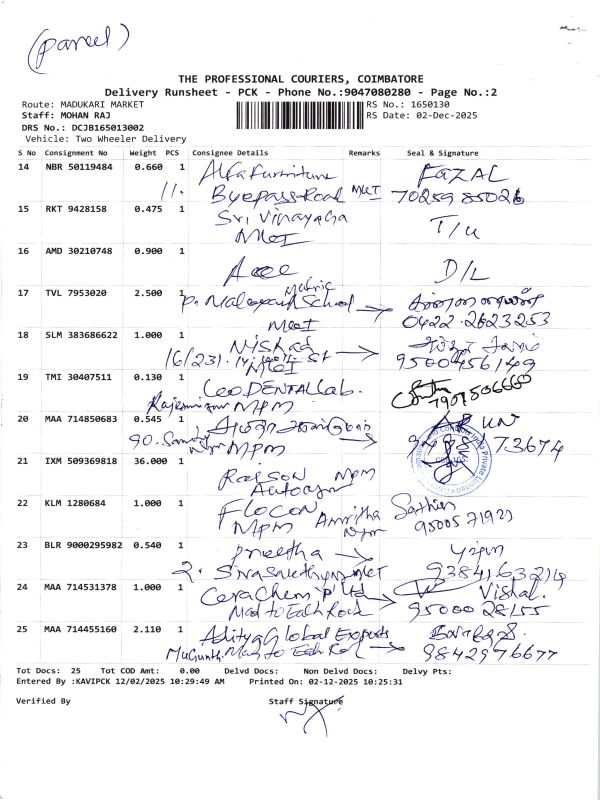 (parcel)
THE PROFESSIONAL COURIERS, COIMBATORE
Delivery Runsheet - PCK - Phone No.:9047080280 - Page No.:2
Route: MADUKARI MARKET RS No.: 1650130
Staff: MOHAN RAJ RS Date: 02-Dec-2025
DRS No.: DCJB165013002
Vehicle: Two Wheeler Delivery
S No Consignment No Weight PCS Consignee Details Remarks Seal & Signature
14 NBR 50119484 0.660 1 Alfa Furniture FaZAL
Byepass Road MKT 70259 85026
15 RKT 9428158 0.475 1 Sri Vinayaga T/u
MKT
16 AMD 30210748 0.900 1 D/L
17 TVL 7953020 2.500 1 Matric
School
MKT 0422.2623253
18 SLM 383686622 1.000 1 Nishad
16/231. St 9500456149
MKT
19 TMI 30407511 0.130 1 Leo DENTAL Lab.
MPM 7907506660
20 MAA 714850683 0.545 1
90. MPM 73674
21 IXM 509369818 36.000 1
MPM
22 KLM 1280684 1.000 1 FLOCON Amritha Sathien
MPM 9500571923
23 BLR 9000295982 0.540 1 Preetha
MKT 9384163214
24 MAA 714531378 1.000 1 CeraChem P Ltd Vishal.
Mad to Road 95000 28155
25 MAA 714455160 2.110 1 Aditya Global Exports
Mad to 9842976677
Tot Docs: 25 Tot COD Amt: 0.00 Delvd Docs: Non Delvd Docs: Delvy Pts:
Entered By :KAVIPCK 12/02/2025 10:29:49 AM Printed On: 02-12-2025 10:25:31
Verified By Staff Signature